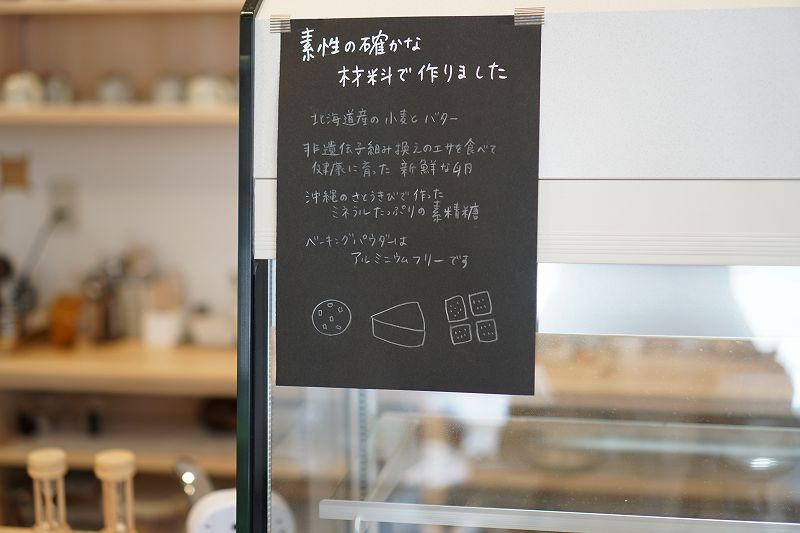 素性の確かな
材料で作りました
北海道産の小麦とバター
非遺伝子組み換えのエサを食べて
健康に育った 新鮮な卵
沖縄のさとうきびで作った
ミネラルたっぷりの素精糖
ベーキングパウダーは
アルミニウムフリーです